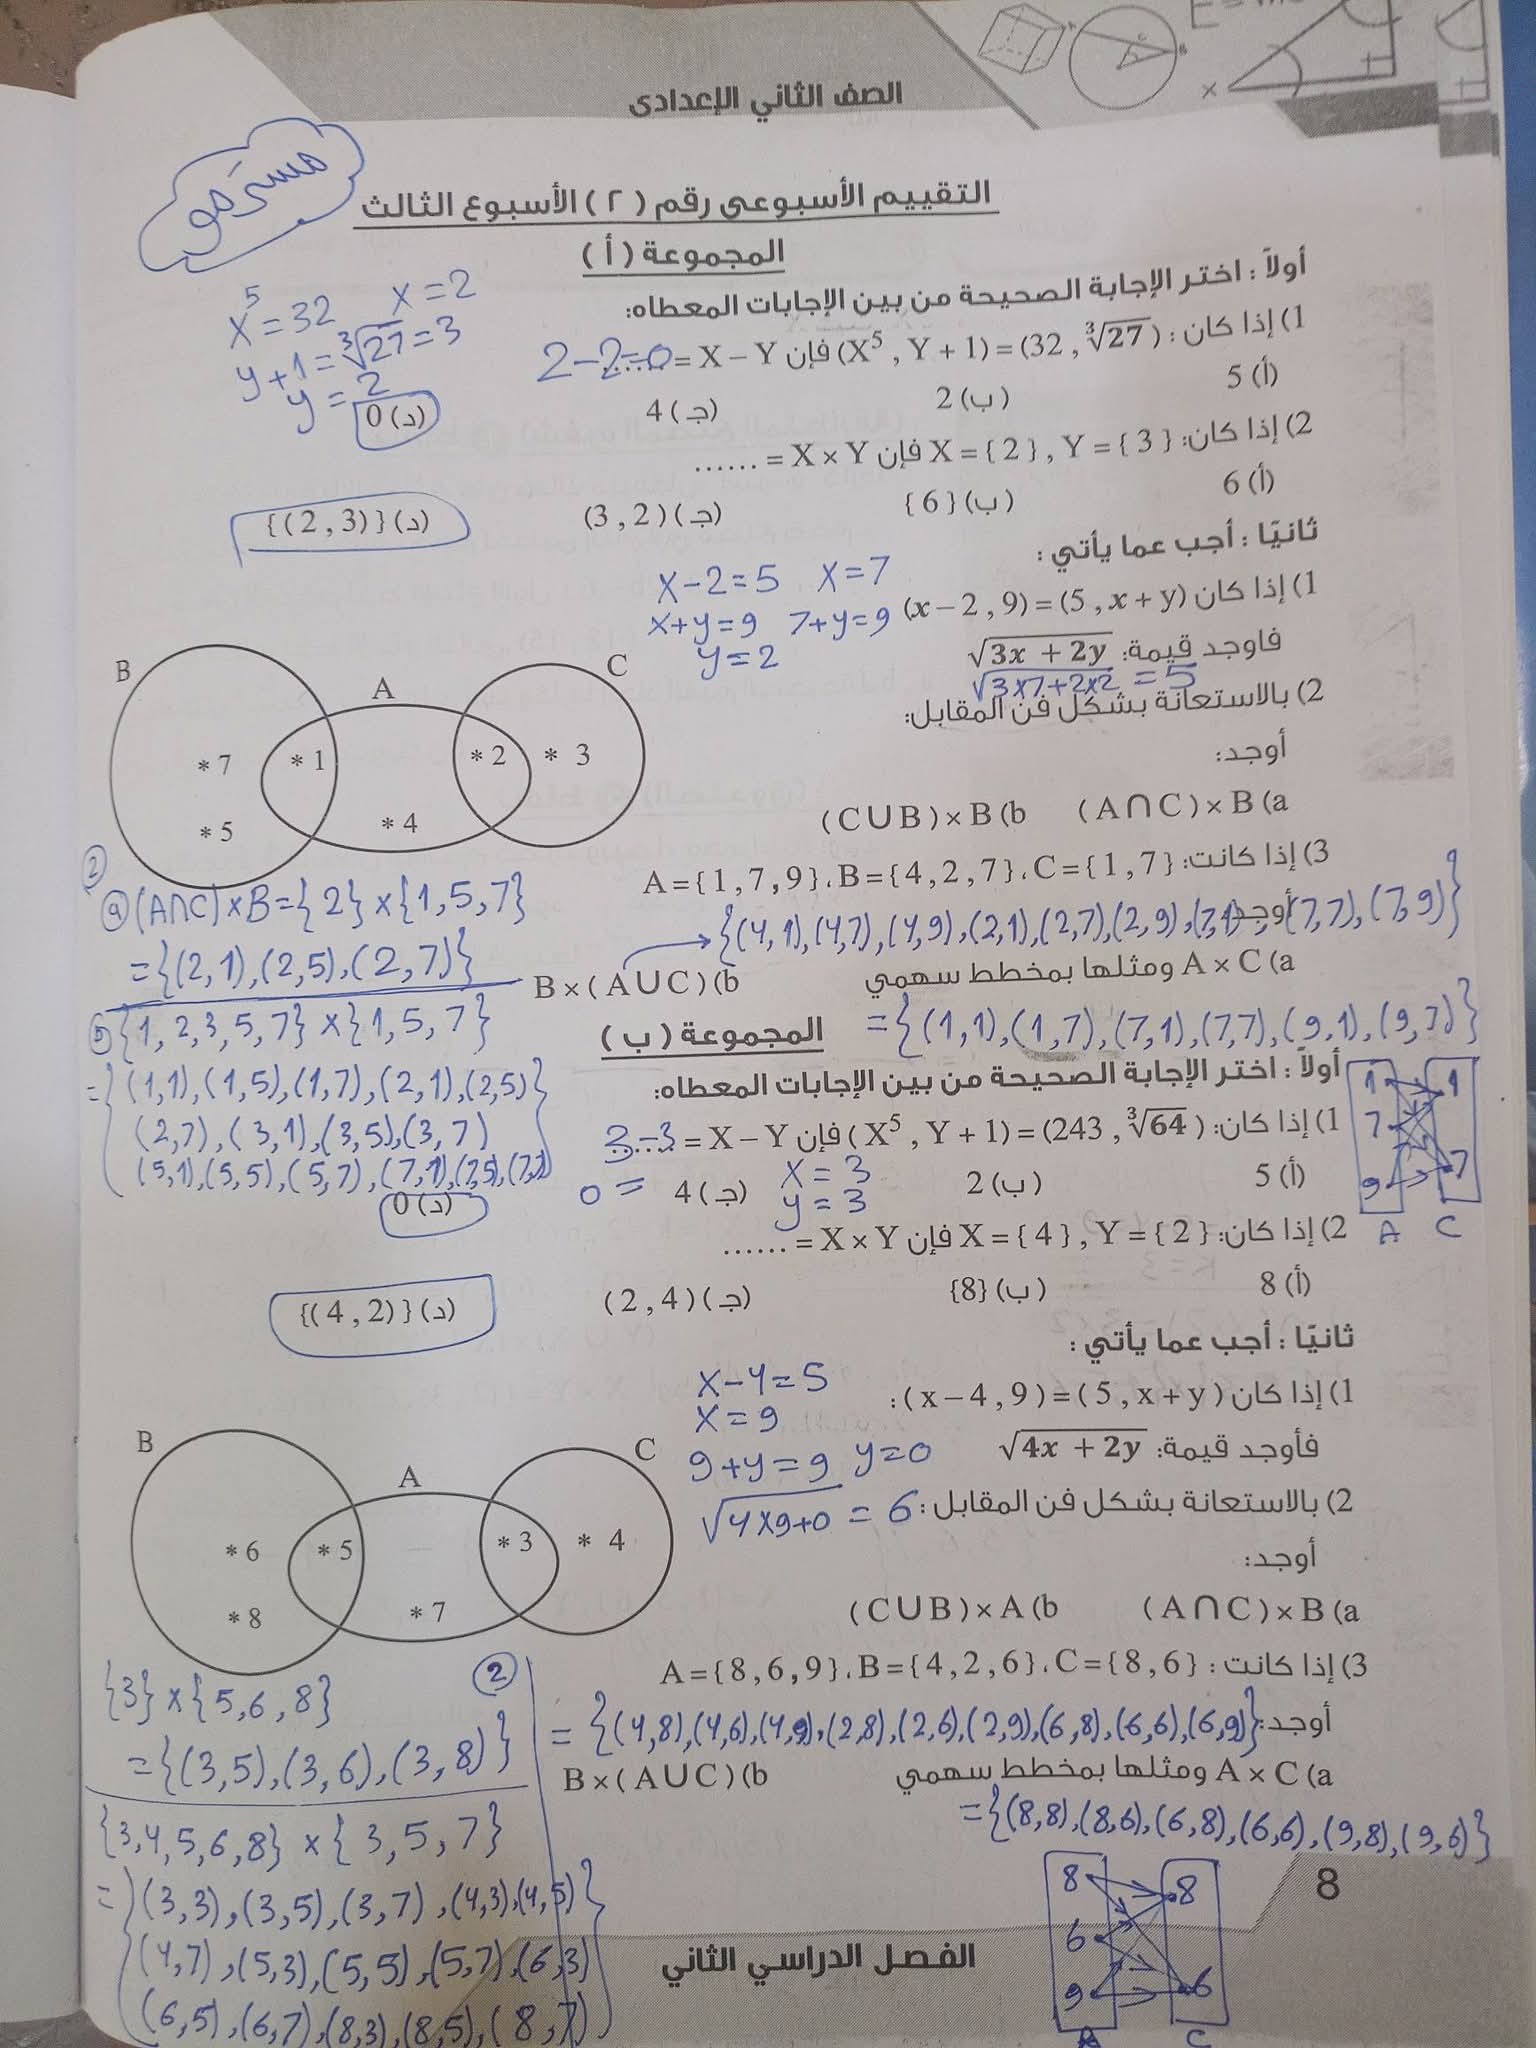 الصف الثاني الإعدادى
التقييم الأسبوعى رقم (٢) الأسبوع الثالث
المجموعة (أ)
أولاً : اختر الإجابة الصحيحة من بين الإجابات المعطاه:
1) إذا كان : (X⁵ , Y + 1) = (32 , ∛27) فإن X − Y = ...... 2-2=0
x⁵ = 32 x = 2
y+1 = ∛27 = 3
y = 2
(أ) 5 (ب) 2 (جـ) 4 (د) 0
2) إذا كان: X = {2} , Y = {3} فإن X × Y = ......
(أ) 6 (ب) {6} (جـ) (3 , 2) (د) {(2 , 3)}
ثانيًا : أجب عما يأتي :
1) إذا كان (x − 2 , 9) = (5 , x + y)
x-2=5 x=7
x+y=9 7+y=9
y=2
فاوجد قيمة: √3x + 2y
√3x7+2x2 = 5
2) بالاستعانة بشكل فن المقابل:
أوجد:
B A C
* 7 * 1 * 2 * 3
* 5 * 4
a) (A∩C) × B b) (C∪B) × B
3) إذا كانت: A = {1 , 7 , 9} ، B = {4 , 2 , 7} ، C = {1 , 7}
أوجد:
{(4,1),(4,7),(4,9),(2,1),(2,7),(2,9),(7,1),(7,7),(7,9)}
a) A × C ومثلها بمخطط سهمي b) B × (A∪C)
= {(1,1),(1,7),(7,1),(7,7),(9,1),(9,7)}
1 7 9 1 7
A C
2
a (A∩C)×B={2}×{1,5,7}
={(2,1),(2,5),(2,7)}
b {1,2,3,5,7}×{1,5,7}
={(1,1),(1,5),(1,7),(2,1),(2,5)
(2,7),(3,1),(3,5),(3,7)
(5,1),(5,5),(5,7),(7,1),(7,5),(7,7)}
المجموعة (ب)
أولاً : اختر الإجابة الصحيحة من بين الإجابات المعطاه:
1) إذا كان: (X⁵ , Y + 1) = (243 , ∛64) فإن X − Y = ...... 3-3
= 0
x = 3
y = 3
(أ) 5 (ب) 2 (جـ) 4 (د) 0
2) إذا كان: X = {4} , Y = {2} فإن X × Y = ......
(أ) 8 (ب) {8} (جـ) (2 , 4) (د) {(4 , 2)}
ثانيًا : أجب عما يأتي :
1) إذا كان (x − 4 , 9) = (5 , x + y) :
x-4=5
x=9
9+y=9 y=0
فأوجد قيمة: √4x + 2y
√4x9+0 = 6
2) بالاستعانة بشكل فن المقابل :
أوجد:
B A C
* 6 * 5 * 3 * 4
* 8 * 7
a) (A∩C) × B b) (C∪B) × A
3) إذا كانت : A = {8 , 6 , 9} ، B = {4 , 2 , 6} ، C = {8 , 6}
أوجد:
= {(4,8),(4,6),(4,9),(2,8),(2,6),(2,9),(6,8),(6,6),(6,9)}
a) A × C ومثلها بمخطط سهمي b) B × (A∪C)
= {(8,8),(8,6),(6,8),(6,6),(9,8),(9,6)}
8 6 9 8 6
A C
2
{3}×{5,6,8}
={(3,5),(3,6),(3,8)}
{3,4,5,6,8}×{3,5,7}
={(3,3),(3,5),(3,7),(4,3),(4,5)
(4,7),(5,3),(5,5),(5,7),(6,3)
(6,5),(6,7),(8,3),(8,5),(8,7)}
8
الفصل الدراسي الثاني